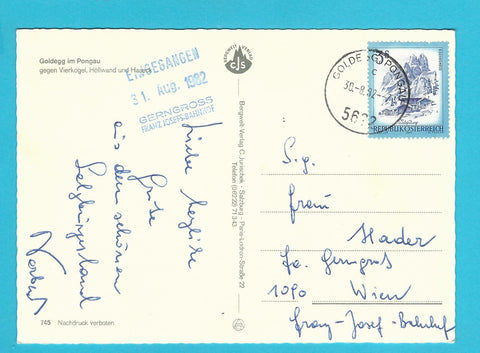 Goldegg im Pongau
gegen Vierkogel, Höllwand und Haseck
EINGEGANGEN
31. AUG. 1982
GERNGROSS
FRANZ JOSEFS-BAHNHOF
BERGWELT VERLAG
CJS
Bergwelt-Verlag C. Jurischek - Salzburg - Paris-Lodron-Straße 22
Telefon (06222) 71343
GOLDEGG PONGAU
c
30.-8.82-
5622
REPUBLIK ÖSTERREICH
liebe herzliche
Grüße
aus dem schönen
Salzburgerland
Norbert
S.g.
Frau
Mader
Fa. Gerngroß
1090 Wien
Franz-Josef-Bahnhof
745 Nachdruck verboten.